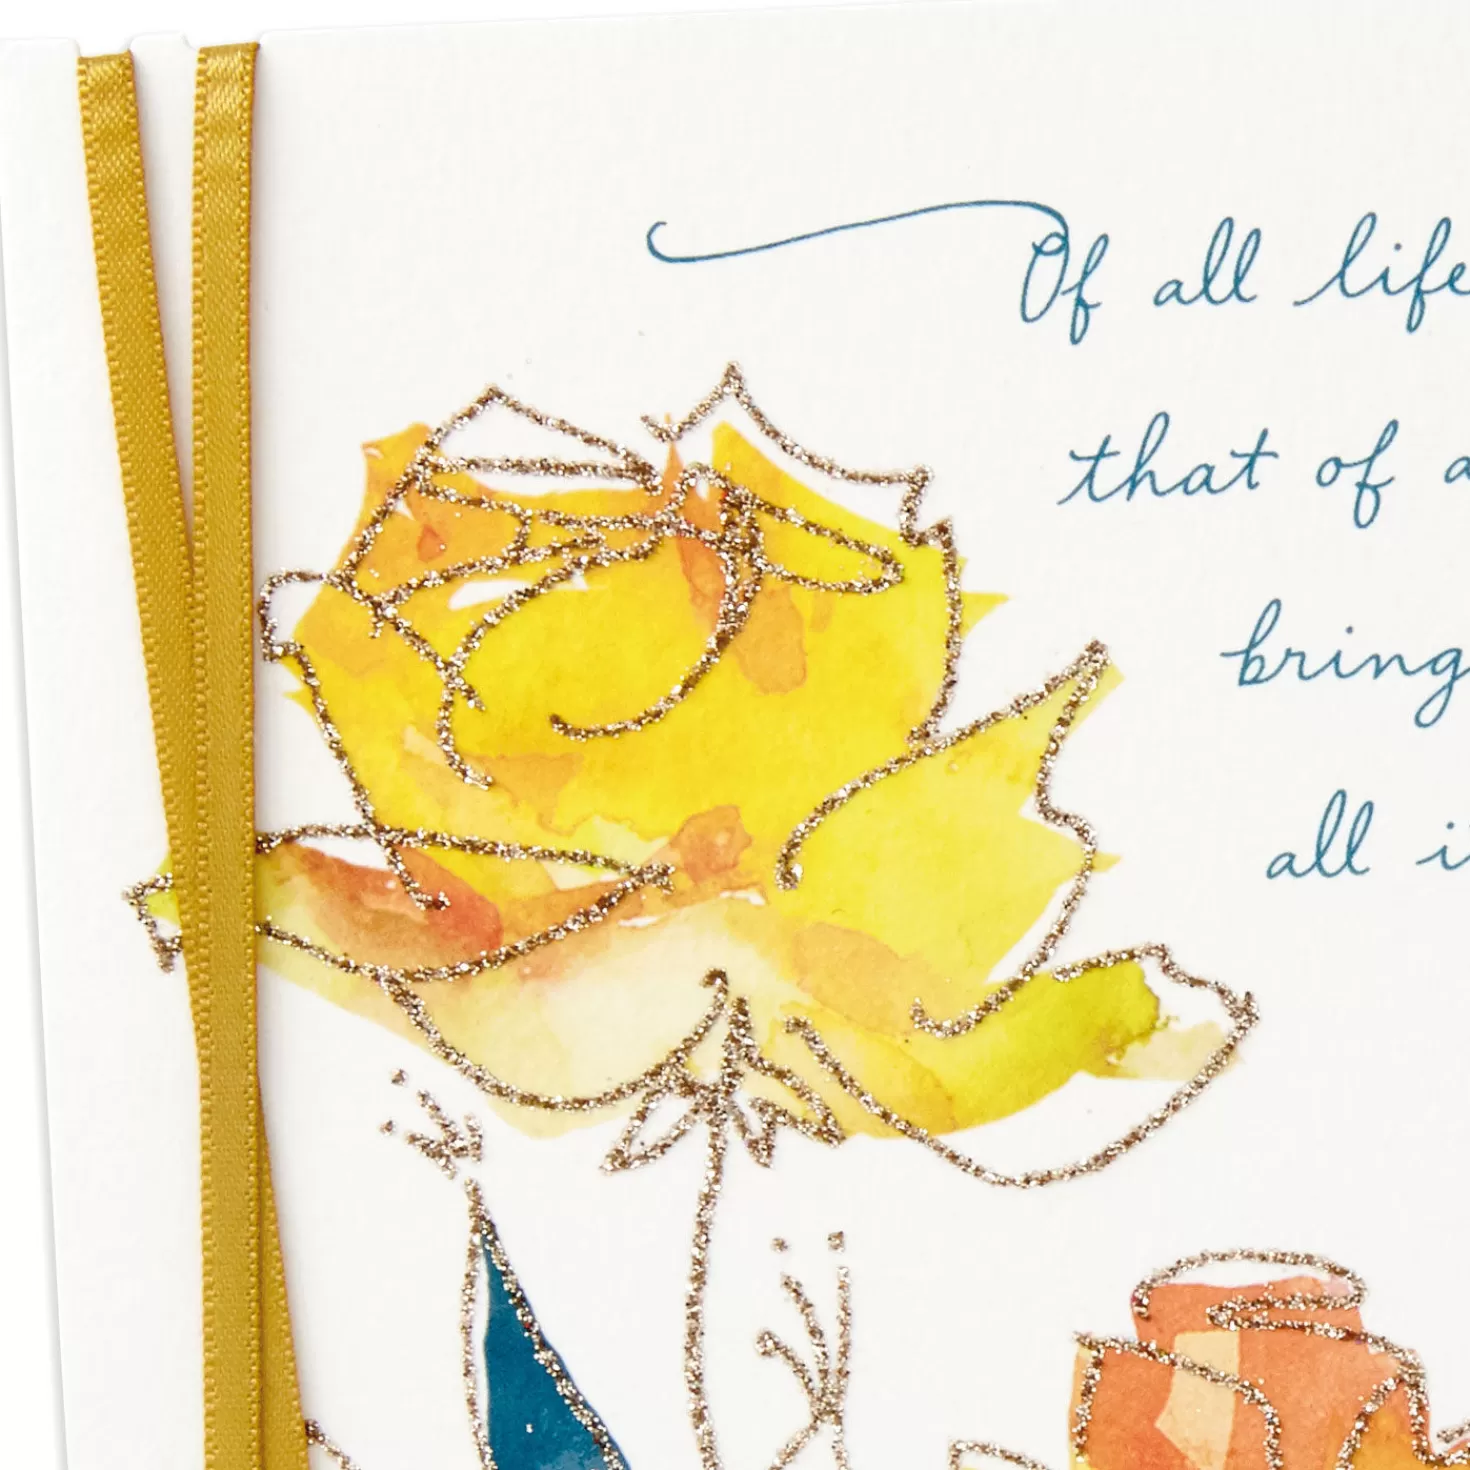 Of all life
that of a
bring
all i